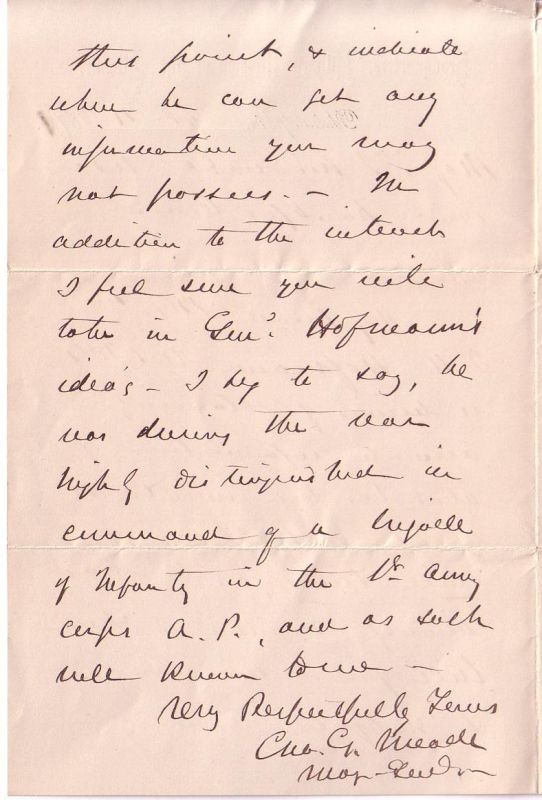 this point, & indicate
where he can get any
information you may
not possess. — In
addition to the interest
I feel sure you will
take in Genl. Hofmann's
ideas — I beg to say, he
was during the war
highly distinguished in
command of a brigade
of Infantry in the 1st Army
corps A. P., and as such
well known to me —
Very Respectfully Yours
Geo. G. Meade
Maj-Gen